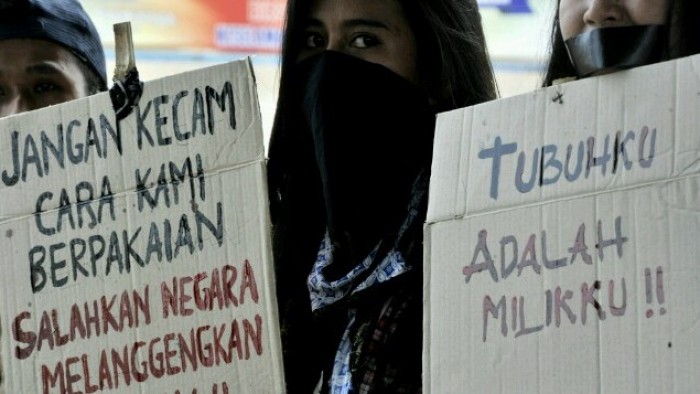 JANGAN KECAM
CARA KAMI
BERPAKAIAN
SALAHKAN NEGARA
MELANGGENGKAN
TUBUHKU
ADALAH
MILIKKU !!